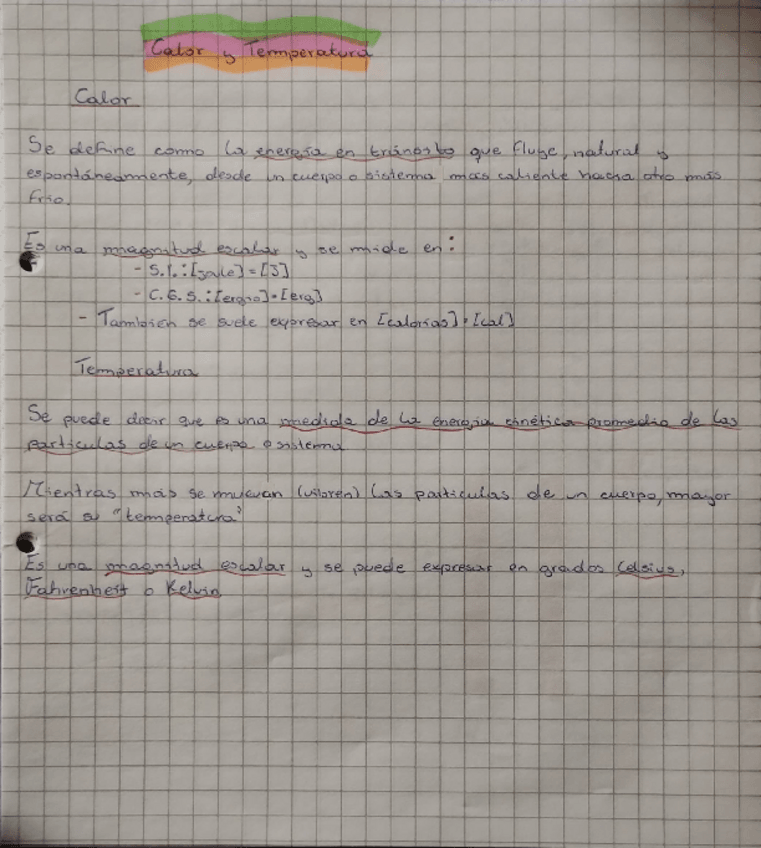 Calor y Temperatura
Calor
Se define como la energía en tránsito que fluye, natural y
espontáneamente, desde un cuerpo o sistema más caliente hacia otro más
frío.
Es una magnitud escalar y se mide en:
- S.I.: [joule] = [J]
- C.G.S.: [ergio] = [erg]
- También se suele expresar en [calorías] = [cal]
Temperatura
Se puede decir que es una medida de la energía cinética promedio de las
partículas de un cuerpo o sistema
Mientras más se muevan (vibren) las partículas de un cuerpo, mayor
será su "temperatura"
Es una magnitud escalar y se puede expresar en grados Celsius,
Fahrenheit o Kelvin